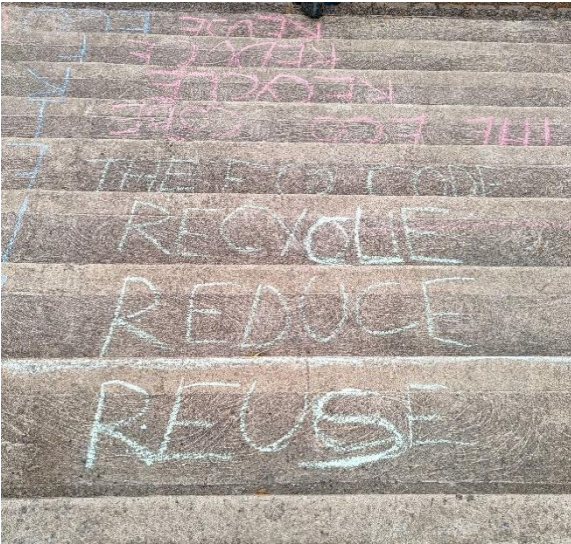 REUSE
REDUCE
RECYCLE
THE ECO CODE
THE ECO CODE
RECYCLE
REDUCE
REUSE